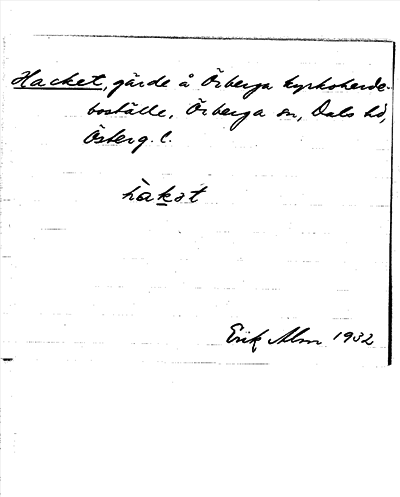 Hacket, gärde å Örberga kyrkoherde-
boställe, Örberga sn, Dals hd,
Österg. l.
hàkət
Erik Alm 1932